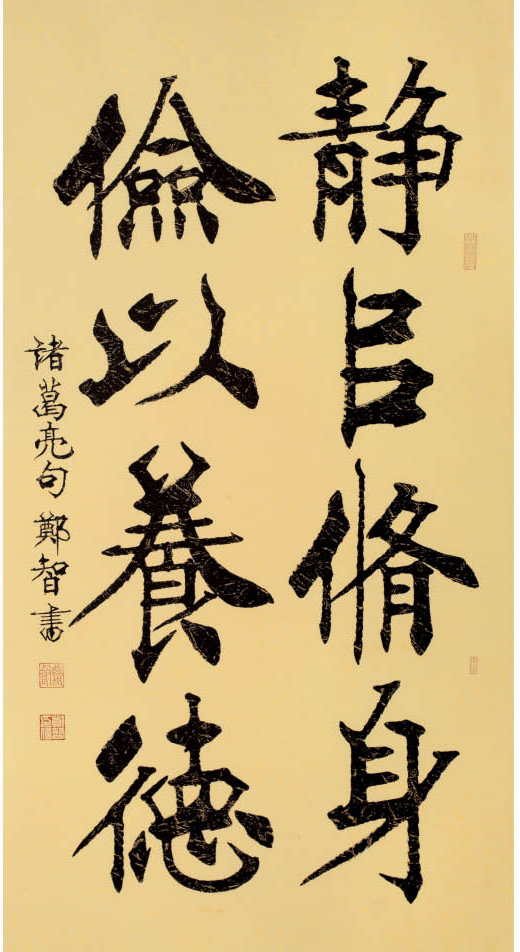 静㠯脩身
儉以養德
诸葛亮句 鄭智書